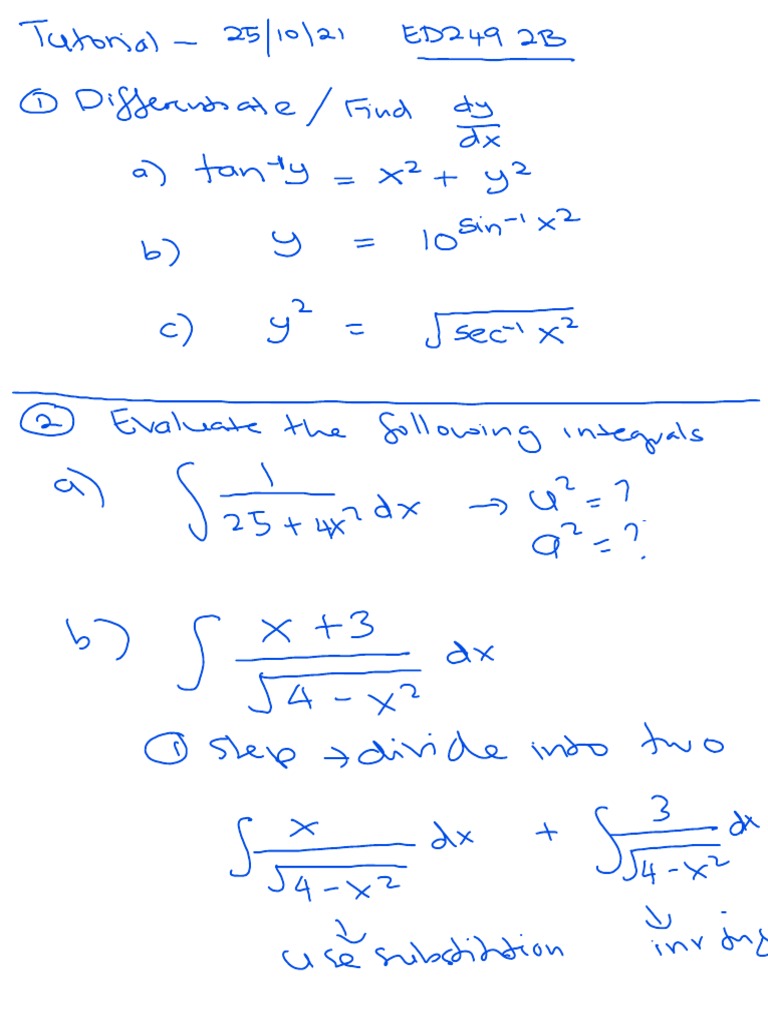 Tutorial – 25/10/21 ED249 2B
① Differentiate / Find dy/dx
a) tan⁻¹y = x² + y²
b) y = 10^(sin⁻¹ x²)
c) y² = √(sec⁻¹ x²)
② Evaluate the following integrals
a) ∫ 1/(25 + 4x²) dx → u² = ?
a² = ?
b) ∫ (x + 3)/√(4 − x²) dx
① step → divide into two
∫ x/√(4 − x²) dx + ∫ 3/√(4 − x²) dx
↓ ↓
use substitution inv trig